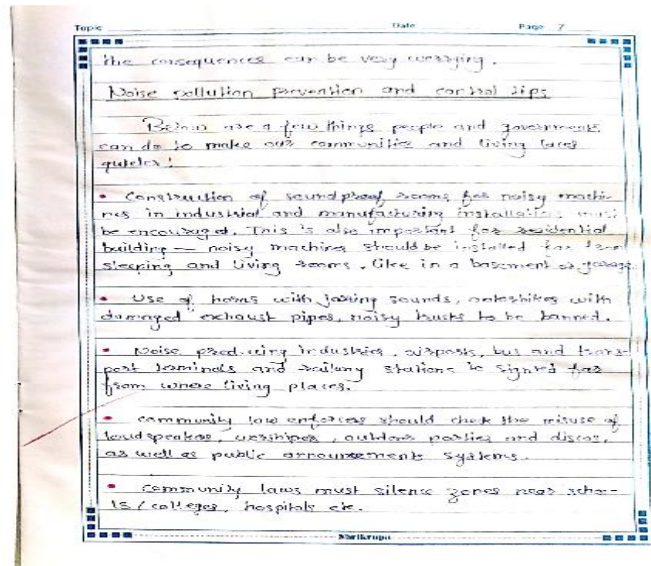 Topic Date Page 7
the consequences can be very worrying.
Noise pollution prevention and control tips
Below are a few things people and governments
can do to make our communities and living laces
quieter!
• Construction of soundproof rooms for noisy machi-
nes in industrial and manufacturing installation must
be encouraged. This is also important for residential
building — noisy machines should be installed far from
sleeping and living rooms, like in a basement or garage
• Use of horns with jaring sounds, with
damaged exhaust pipes, noisy to be banned.
• Noise producing industries, airports, bus and trans-
port terminals and railway stations to far
from where living places.
• community law enforcers should check the misuse of
loudspeakers, outdoor parties and discos,
as well as public announcements systems.
• community laws must silence zones near scho-
ls / colleges, hospitals etc.
Shrikrupa